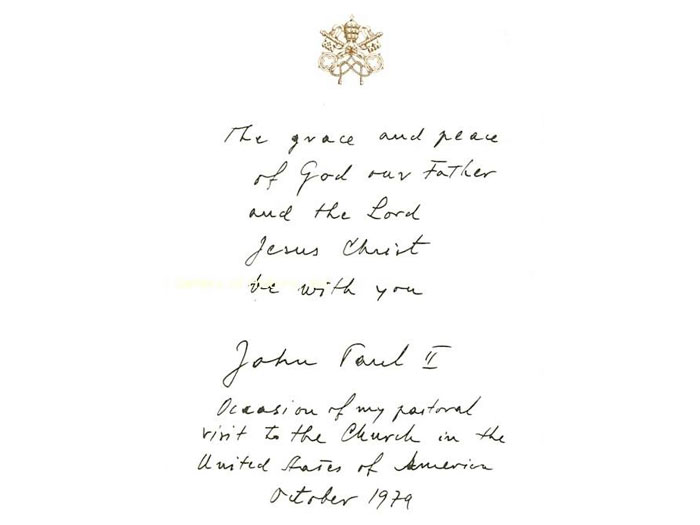 The grace and peace
of God our Father
and the Lord
Jesus Christ
be with you
John Paul II
Occasion of my pastoral
visit to the Church in the
United States of America
October 1979